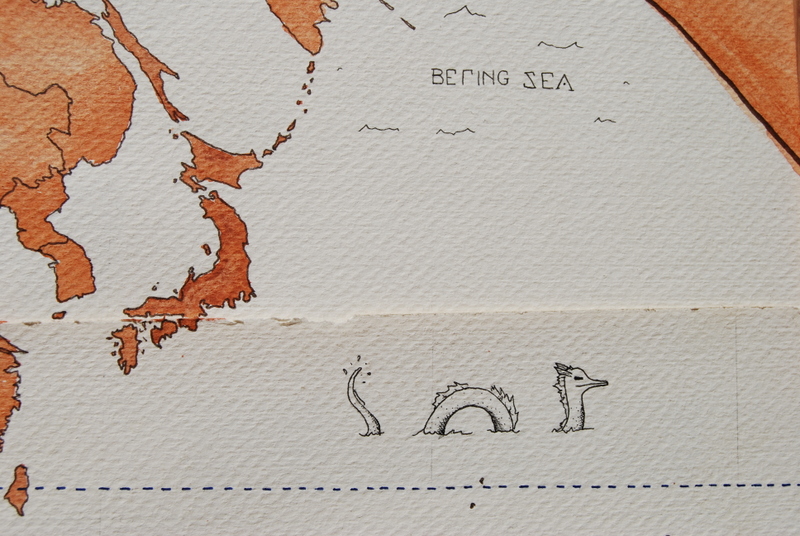 BERING SEA